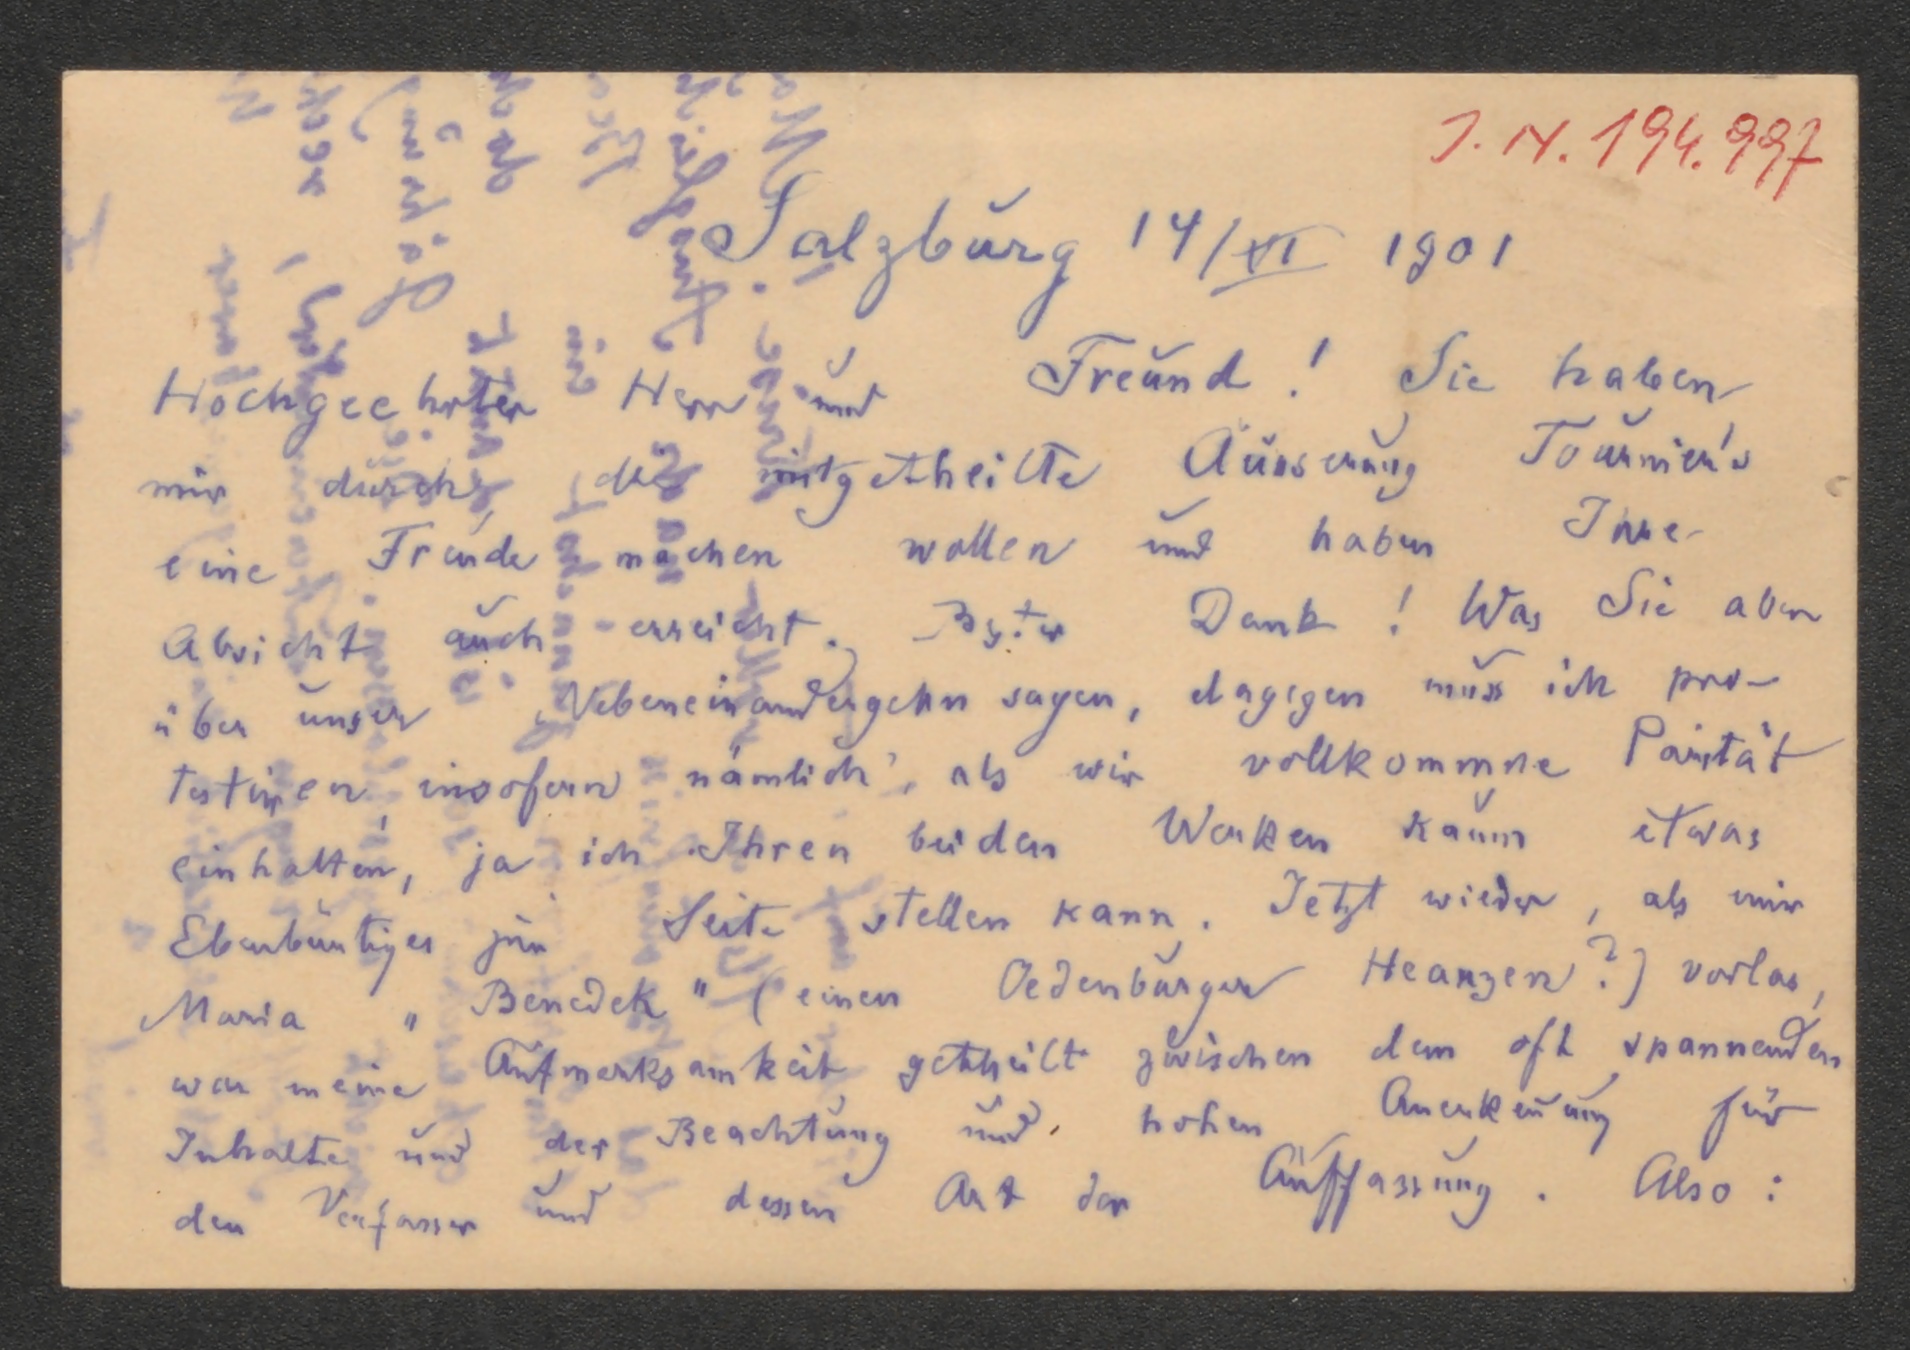 J. N. 194.997
Salzburg 14/XI 1901
Hochgeehrter Herr und Freund! Sie haben
mir durch die mitgetheilte Äusserung Tournier's
eine Freude machen wollen und haben Ihre
Absicht auch erreicht. Bester Dank! Was Sie aber
über unser Nebeneinandergehn sagen, dagegen muss ich pro-
testiren, insofern nämlich, als wir vollkommne Parität
einhalten, ja ich Ihren beiden Werken kaum etwas
Ebenbürtiges zur Seite stellen kann. Jetzt wieder, als mir
Maria "Benedek" (einen Oedenburger Heanzen?) vorlas,
war meine Aufmerksamkeit getheilt zwischen dem oft spannenden
Inhalte und der Beachtung und hohen Anerkennung für
den Verfasser und dessen Art der Auffassung. Also: